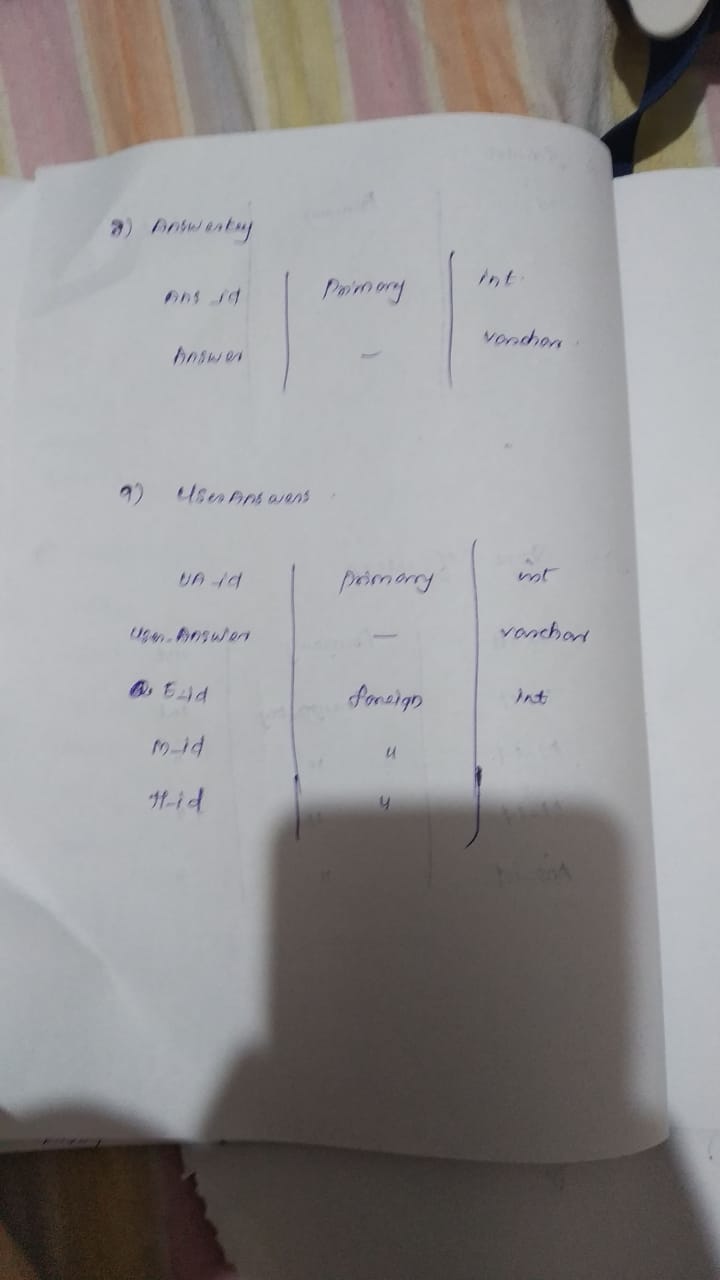 8) Answerkey
Ans_id | Primary | int
Answer | – | varchar
9) UserAnswers
UA_id | primary | int
User_Answer | – | varchar
E_id | foreign | int
M_id | "
H_id | "